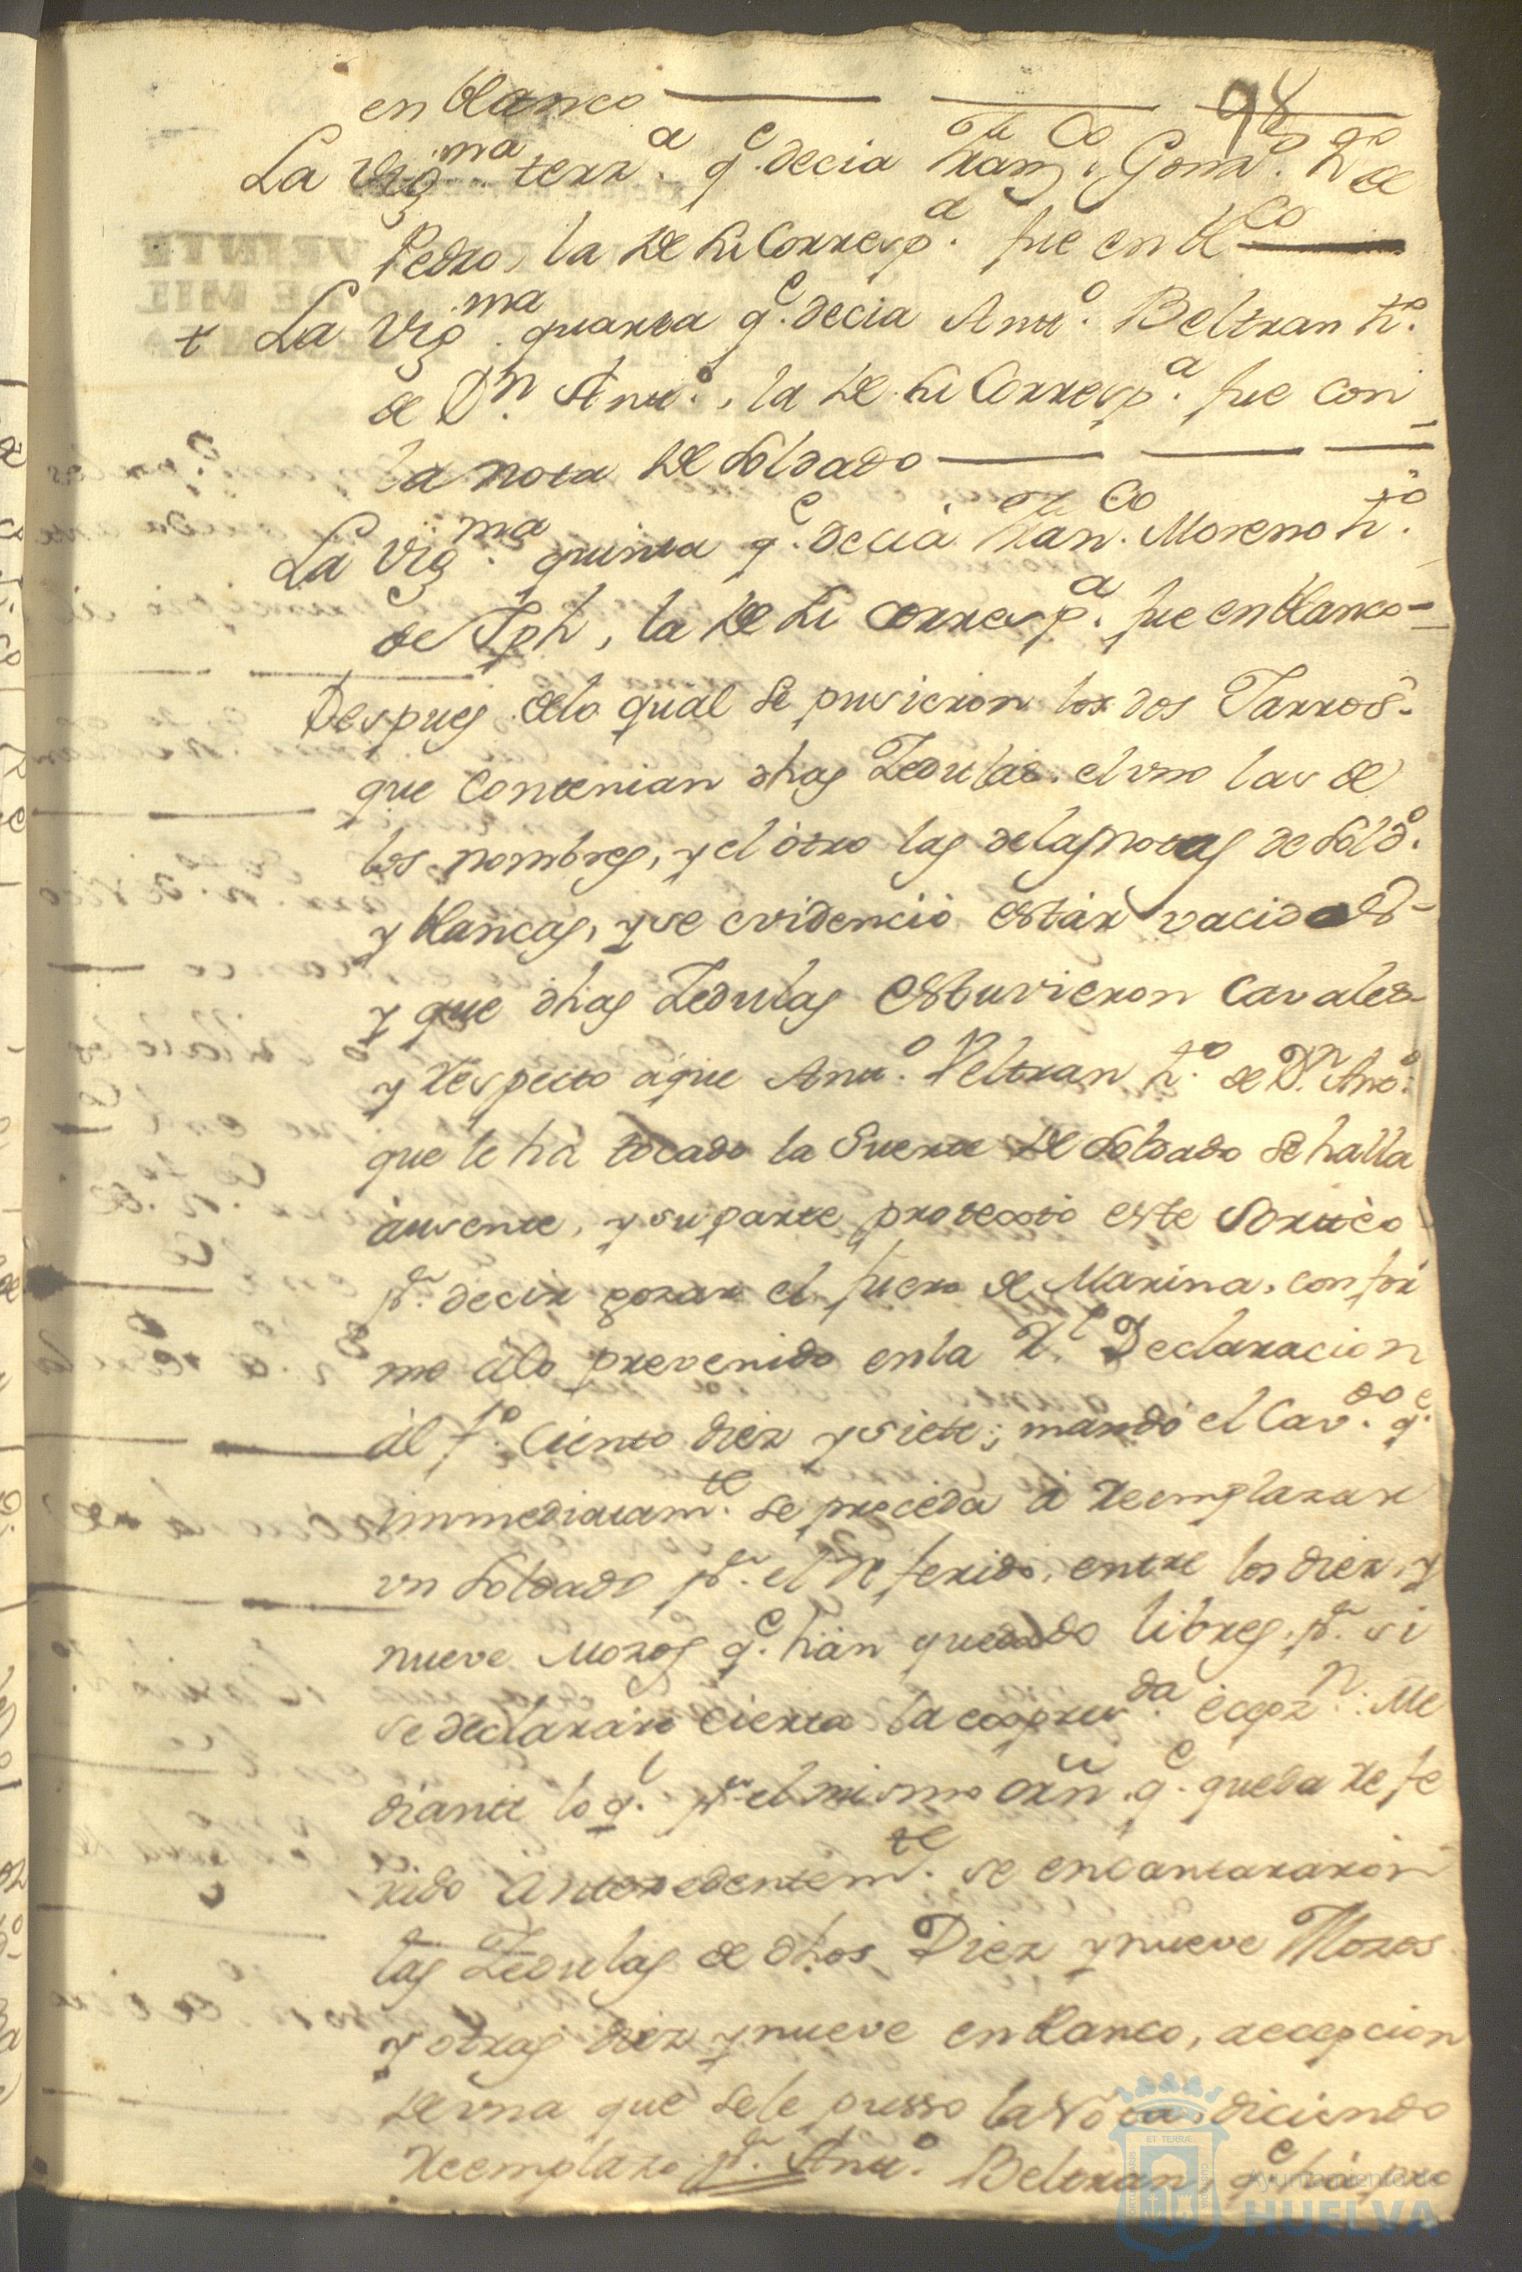 98
en blanco
La Vig.ma terz.a q.e decia Fran.co Gom.z h.o de
Pedro, la de su Corresp.a fue en bl.co
+ La Vig.ma quarta q.e decia Ant.o Beltran h.o
de D.n Ant.o, la de su Corresp.a fue con
la nota de soldado
La Vig.ma quinta q.e decia Fran.co Moreno h.o
de Jph, la de su corresp.a fue en blanco
Despues de lo qual se pusieron los dos Jarros
que contenian dhas Zedulas, el uno las de
los nombres, y el otro las de las notas de sold.o
y blancas, y se evidenció estár vacidos
y que dhas Zedulas estuvieron cavales
y respecto á que Ant.o Veltran h.o de D.n Ant.o
que le há tocado la suerte de soldado se halla
áusente, y su parte protextó este Sortéo
p.r decir gozar el fuero de Marina, confor
me álo prevenido en la R.l Declaracion
ál f.o ciento diez y siete; mandó el Cav.do q.e
immediatam.te se proceda á reemplazar
un soldado p.r el referido, entre los diez y
nueve Mozos q.e hán quedado libres, p.r si
se declarare cierta la expres.da ecepz.n: Me
diante lo q.l p.r el mismo orñ q.e queda refe
rido ántezedentem.te se encantararon
las Zedulas de dhos Diez y nueve Mozos
y otras diez y nueve en blanco, a ecepcion
de una que se le pusso la Nóta, diciendo
Reemplazo p.r Ant.o Beltran, q.e há pro
Ayuntamiento de
HUELVA